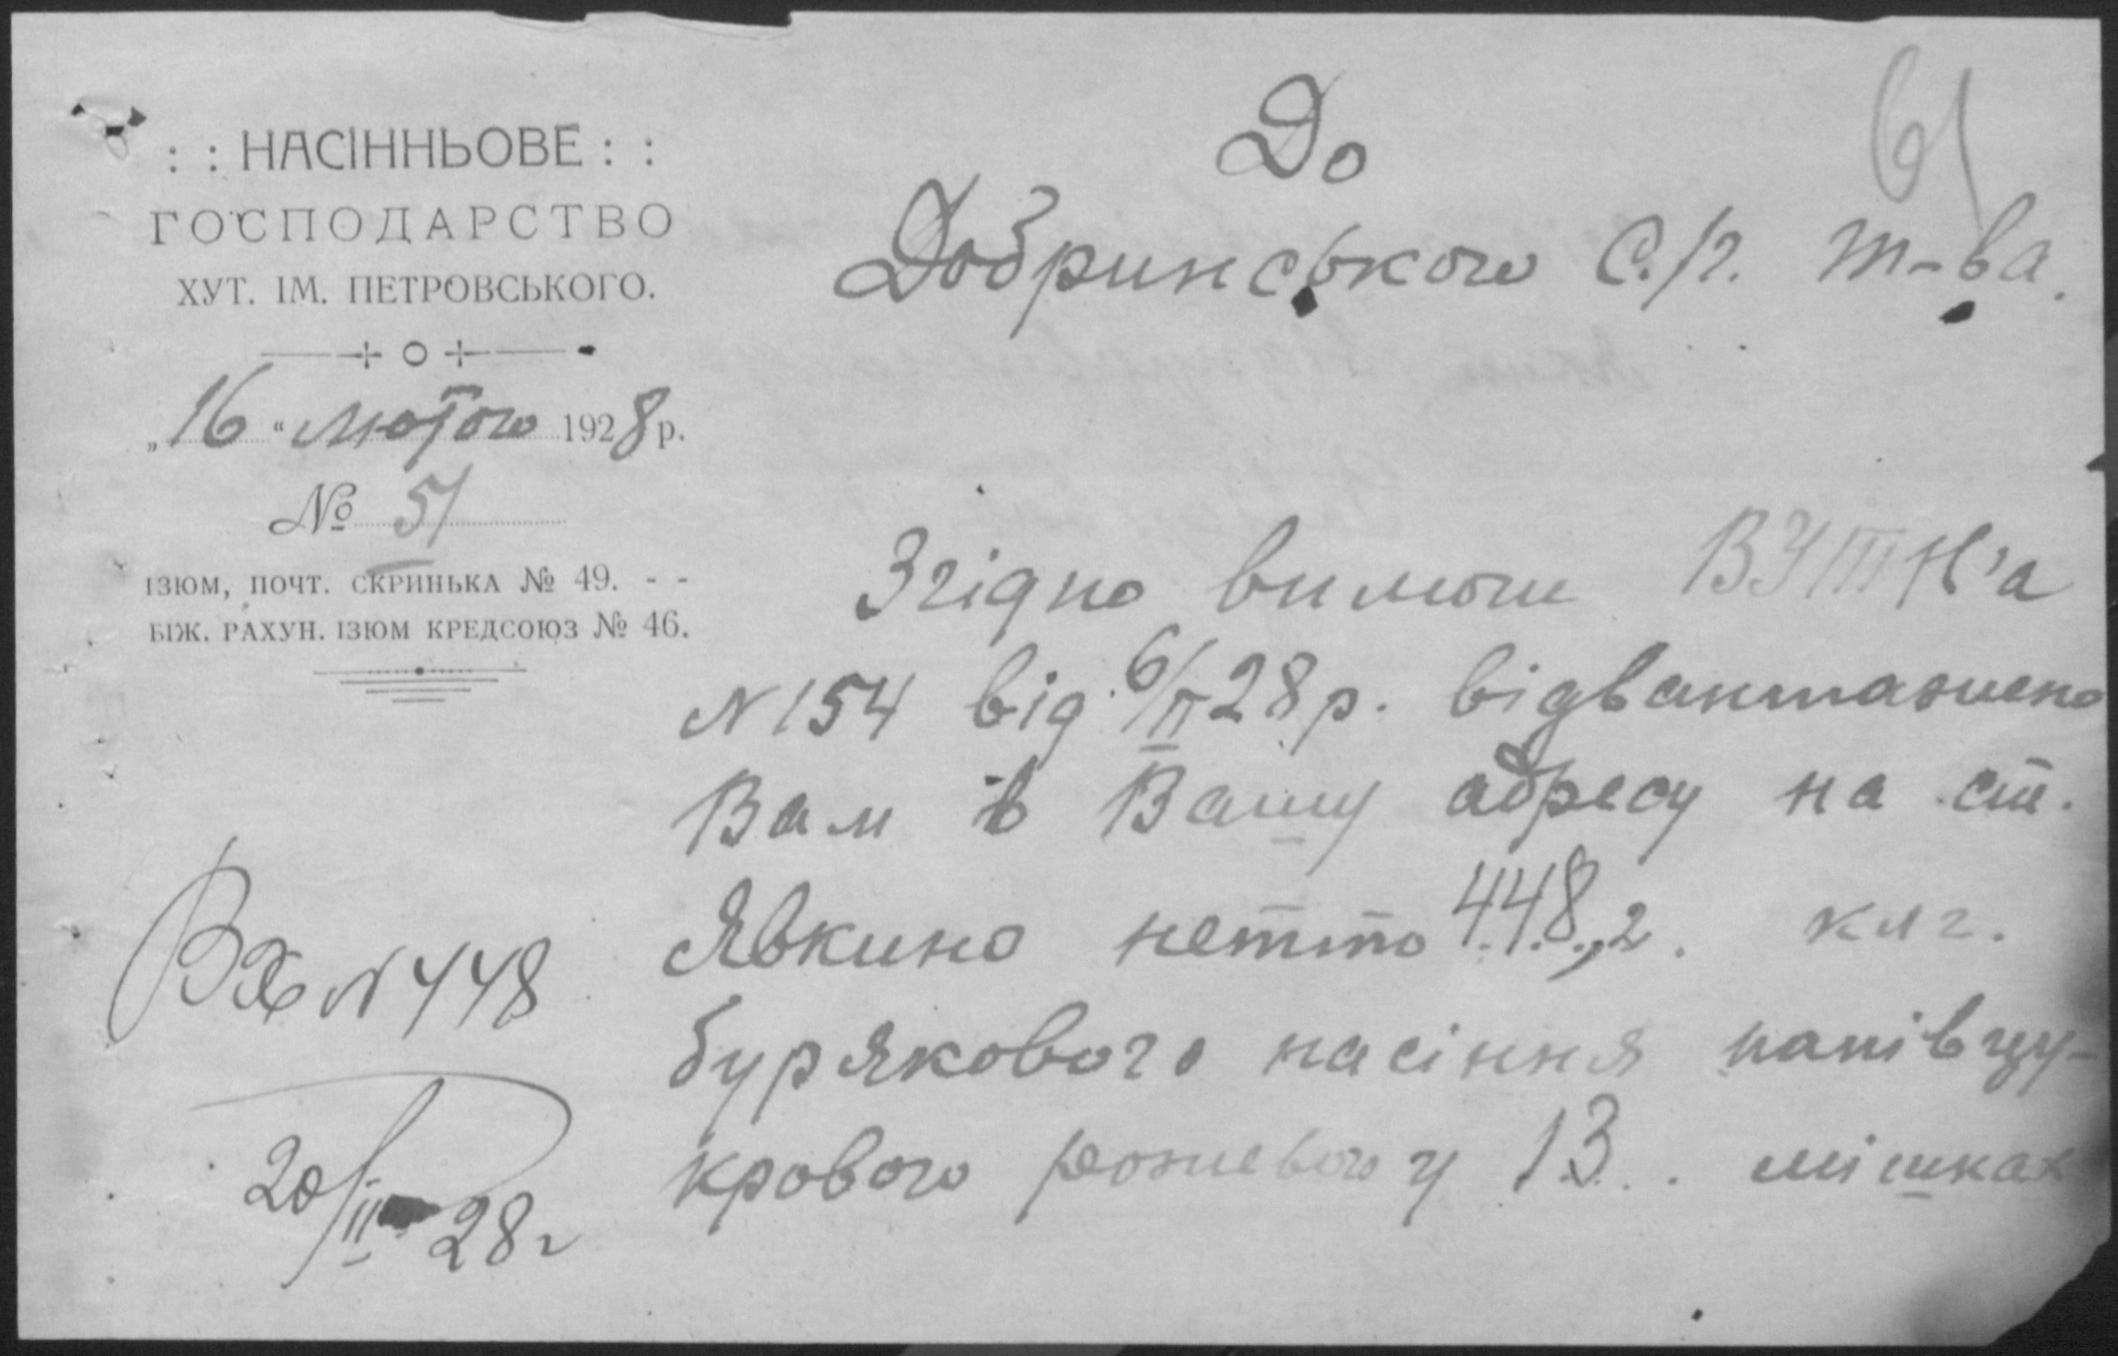 : : НАСІННЬОВЕ : :
ГОСПОДАРСТВО
ХУТ. ІМ. ПЕТРОВСЬКОГО.
„16“ Лютого 1928 р.
№ 51
ІЗЮМ, ПОЧТ. СКРИНЬКА № 49. - -
БІЖ. РАХУН. ІЗЮМ КРЕДСОЮЗ № 46.
61
До
Добринського С./г. т-ва.
Згідно вимоги ВУПТН'а
№ 154 від 6/II 28 р. відвантажено
Вам в Вашу адресу на ст.
Явкино нетто 448,2. клг.
бурякового насіння напівцу-
крового рожевого у 13 . . мішках
Вх № 448
20/II-28 г